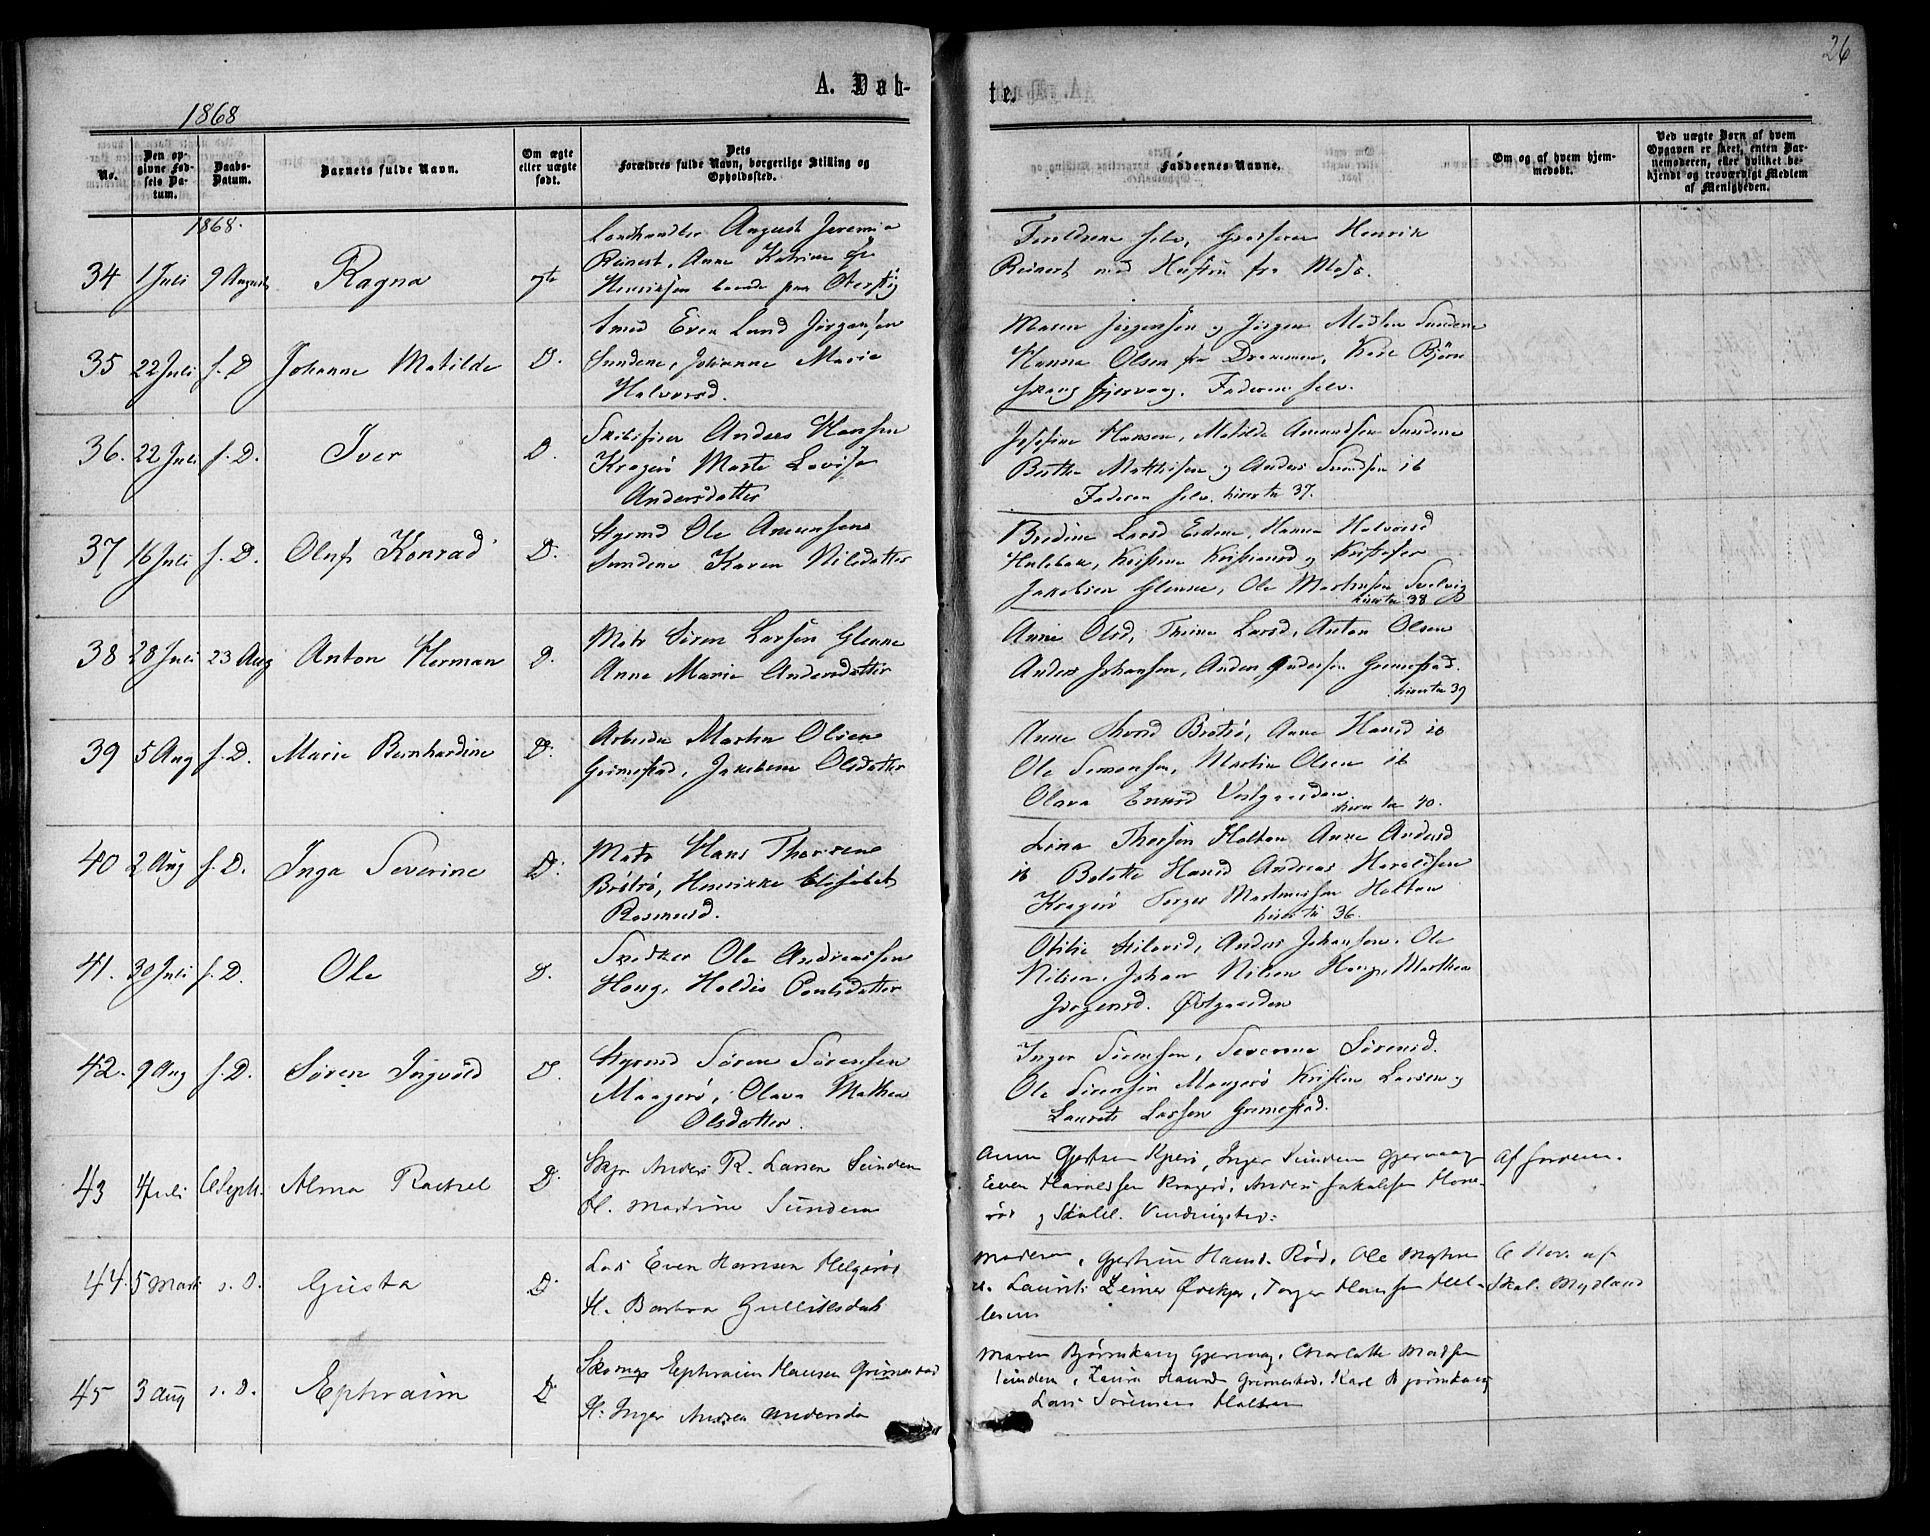 26
A. Døb-
te.
1868
No.
Den op-
givne Fød-
sels Da-
tum.
Daabs-
Datum.
Barnets fulde Navn.
Om ægte
eller uægte
født.
Dets
Forældres fulde Navn, borgerlige Stilling og
Opholdssted.
Faddernes Navne.
Om og af hvem hjem-
medøbt.
Ved uægte Børn af hvem
Opgaven er skeet, enten Bar-
nemoderen, eller hvilket be-
kjendt og troværdigt Medlem
af Menigheden.
1868.
34 1 Juli 9 August Ragna
Landhandler August Jeremia
Reinert, Anne Katrine
Henriksen boende paa
Forældrene selv, Grosserer Henrik
Reinert med Hustru fra Moss.
35 22 Juli s. D. Johanne Matilde D.
Smed Even Lund Jørgensen
Sundene, Johanne Marie
Halvorsd.
Maren Jørgensen og Jørgen Madsen Sundene
Hanna Olsen fra Drammen, Kari Bjørn
skaug Gjervaag, Faderen selv.
36. 22 Juli s. D. Iver D.
Anders Hansen
Kragerø Marte Lovise
Andersdatter
Josefine Hansen, Matilde Amundsen Sundene
Berthe Mathisen og Anders Svendsen ib
Faderen selv. 37.
37 16 Juli s. D. Oluf Konrad D.
Styrmd Ole Amundsen
Sundene Karen Nilsdatter
Bredine Larsd Eidene, Hanna Halvorsd
Holebak, Kristine Kristiansd og Kristofer
Jakobsen Glenne, Ole Martinsen Svelvig
38
38 28 Juli 23 Aug Anton Herman D.
Matr Søren Larsen Glenne
Anne Marie Andersdatter
Anne Olsd, Thrine Larsd, Anton Olsen
Anders Johansen, Anders Andersen Grimestad.
39
39 5 Aug s. D. Marie Bernhardine D.
Arbeider Martin Olsen
Grimestad, Jakobine Olsdatter
Anne Brøtsø, Anne Hansd ib
Ole Sørensen, Martin Olsen ib
Olava Vestgaarden
40.
40 2 Aug s. D. Inga Severine D.
Matr Hans Thoresen
Brøtsø, Henrikke Elisabet
Rasmusd.
Lina Thorsen Holtan Anne Andersd
ib Hansd Andreas Haraldsen
Kragerø Torger Martinsen Holtan
36.
41. 30 Juli s. D. Ole D.
Snedker Ole Andreassen
Haug, Heldis Poulsdatter
Anders Johansen. Ole
Nilsen, Johan Nilsen Haug, Marthea
Jørgensd. Østgaarden
42. 9 Aug s. D. Søren Ingvald D.
Styrmd Søren Sørensen
Maagerø, Olava Mathea
Olsdatter.
Inger Sørensen, Severine Sørensd.
Ole Sørensen Maagerø Kristen Larsen og
Laurits Larsen Grimestad.
43 4 Juli 6 Septb. Alma Rachel D.
Anders R. Larsen Sunden
H. Martine Sunden
Anna Gjertsen Kjerø, Inger Sunden Gjervaag
Even Haraldsen Kragerø, Anders Jakobsen Hone-
rød og Skolel.
Af Jordem.
44. 5 Marts s. D. Gusta D.
Lods Even Hansen Helgerød
H. Barbra Gulliksdat
Moderen, Gjestine Hansd. Rød, Ole
Laurits Zeiner Torger Hansen Hel-
6 Nov. af
Skol. Mydland
45 3 Aug s. D. Ephraim D
Skomag Ephraim Hansen Grimestad
H. Inger Andrea Andersda
Maren Bjørnskaug Gjervaag, Charlotte Madsen
Sunden, Hansd Grimestad. Karl Bjørnskaug
Lars Sørensen Holtan